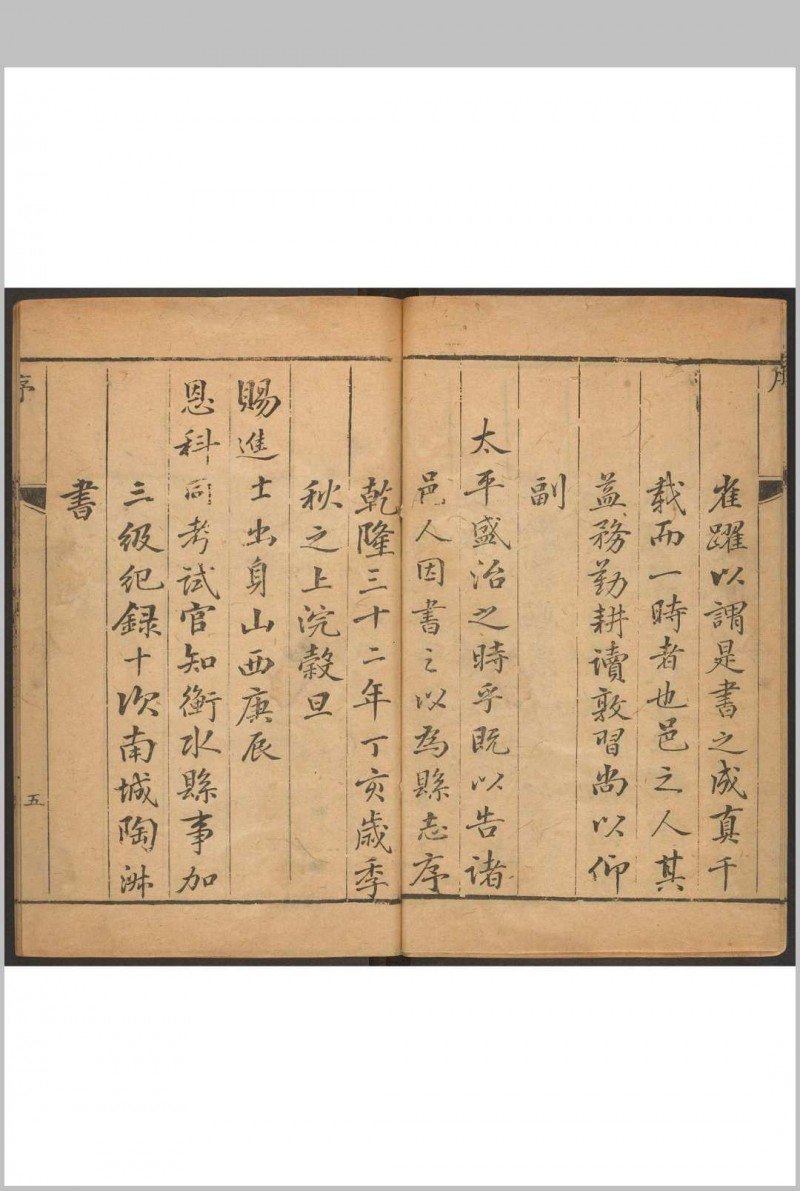 序
雀躍以謂是書之成真千
載而一時者也邑之人其
益務勤耕讀敦習尚以仰
副
太平盛治之時乎既以告諸
邑人因書之以為縣志序
乾隆三十二年丁亥歲季
秋之上浣穀旦
賜進士出身山西庚辰
恩科同考試官知衡水縣事加
三級紀録十次南城陶淋
書
序
五